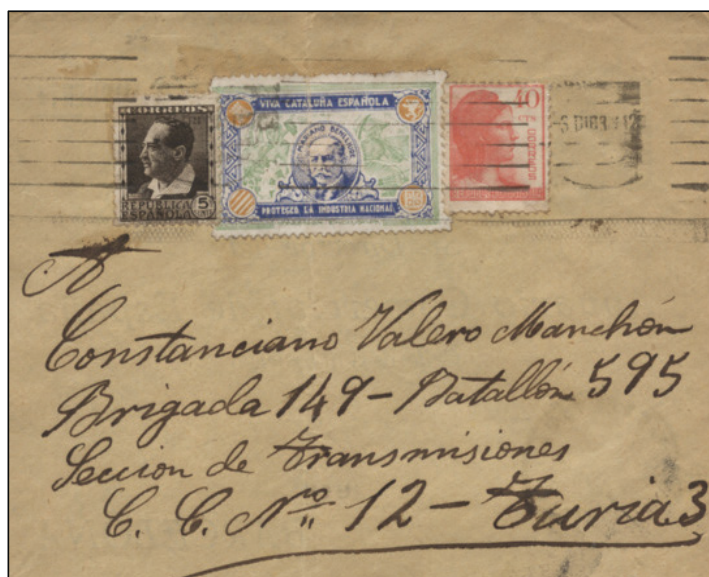 REPÚBLICA
ESPAÑOLA 5
VIVA CATALUÑA ESPAÑOLA
MARIANO
PROTEGED LA INDUSTRIA NACIONAL
40
A
Constanciano Valero Manchón
Brigada 149 - Batallón 595
Seccion de Transmisiones
C. C. Nº 12 - Turia 3